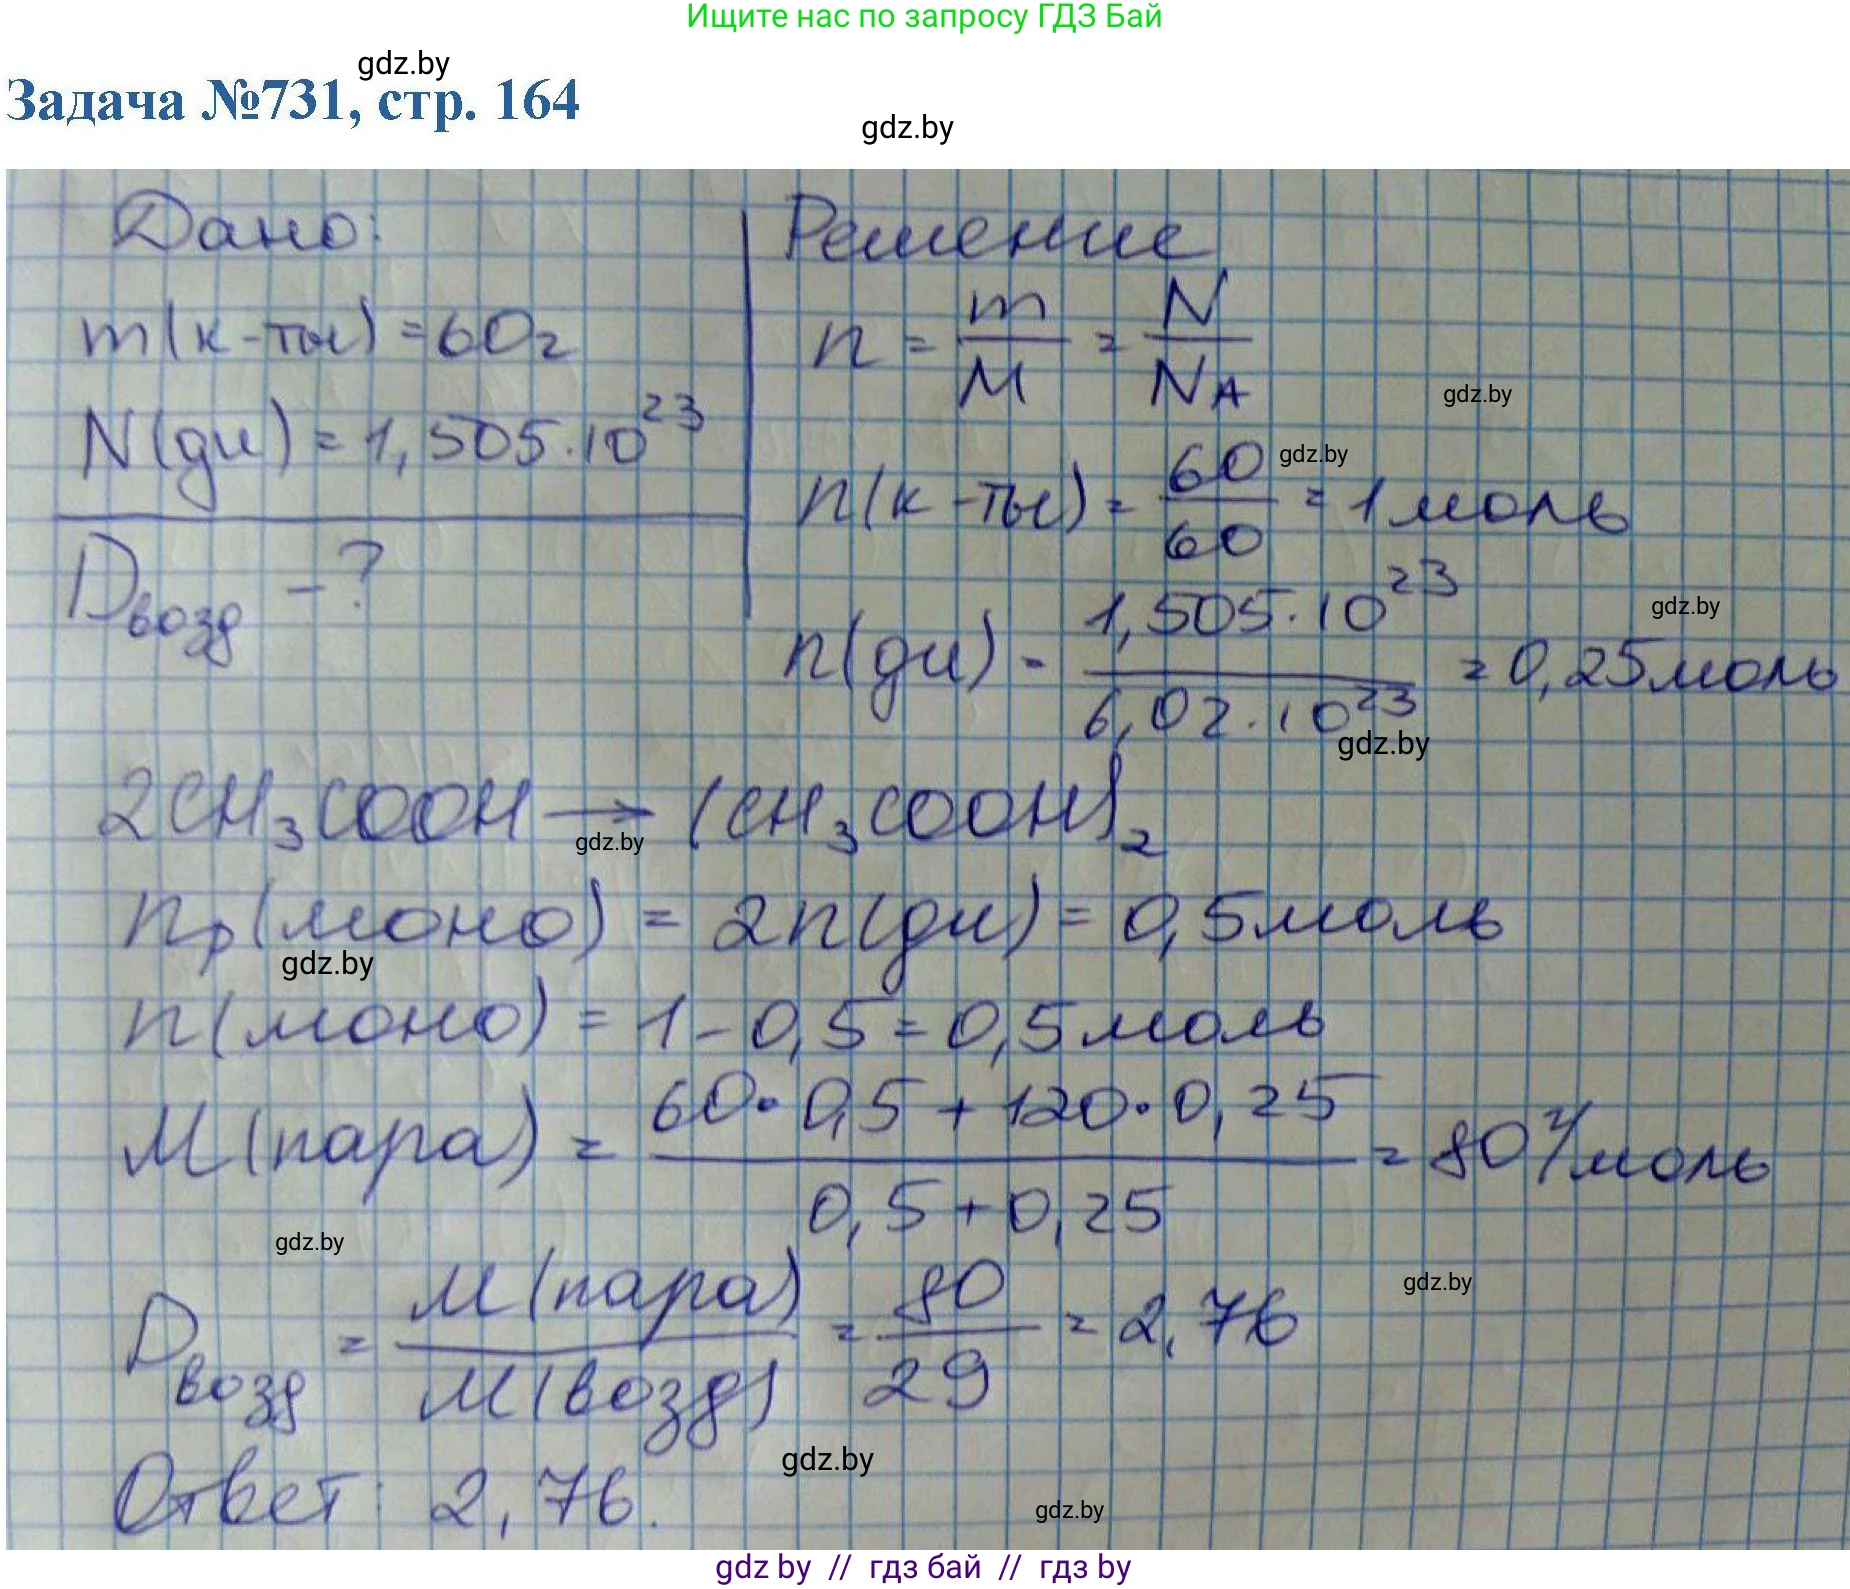 Ищите нас по запросу ГДЗ Бай
gdz.by
Задача №731, стр. 164
gdz.by
Дано:
m(к-ты) = 60г
N(ди) = 1,505·10²³
Dвозд - ?
Решение
n = m/M = N/NA
gdz.by
n(к-ты) = 60/60 = 1 моль
gdz.by
n(ди) = 1,505·10²³/6,02·10²³ = 0,25 моль
gdz.by
gdz.by
2CH₃COOH → (CH₃COOH)₂
gdz.by
nр(моно) = 2n(ди) = 0,5 моль
gdz.by
n(моно) = 1 - 0,5 = 0,5 моль
M(пара) = 60·0,5 + 120·0,25/0,5 + 0,25 = 80 г/моль
gdz.by
Dвозд = M(пара)/M(возд) = 80/29 = 2,76
gdz.by
gdz.by
Ответ: 2,76.
gdz.by
gdz by // гдз бай // гдз by